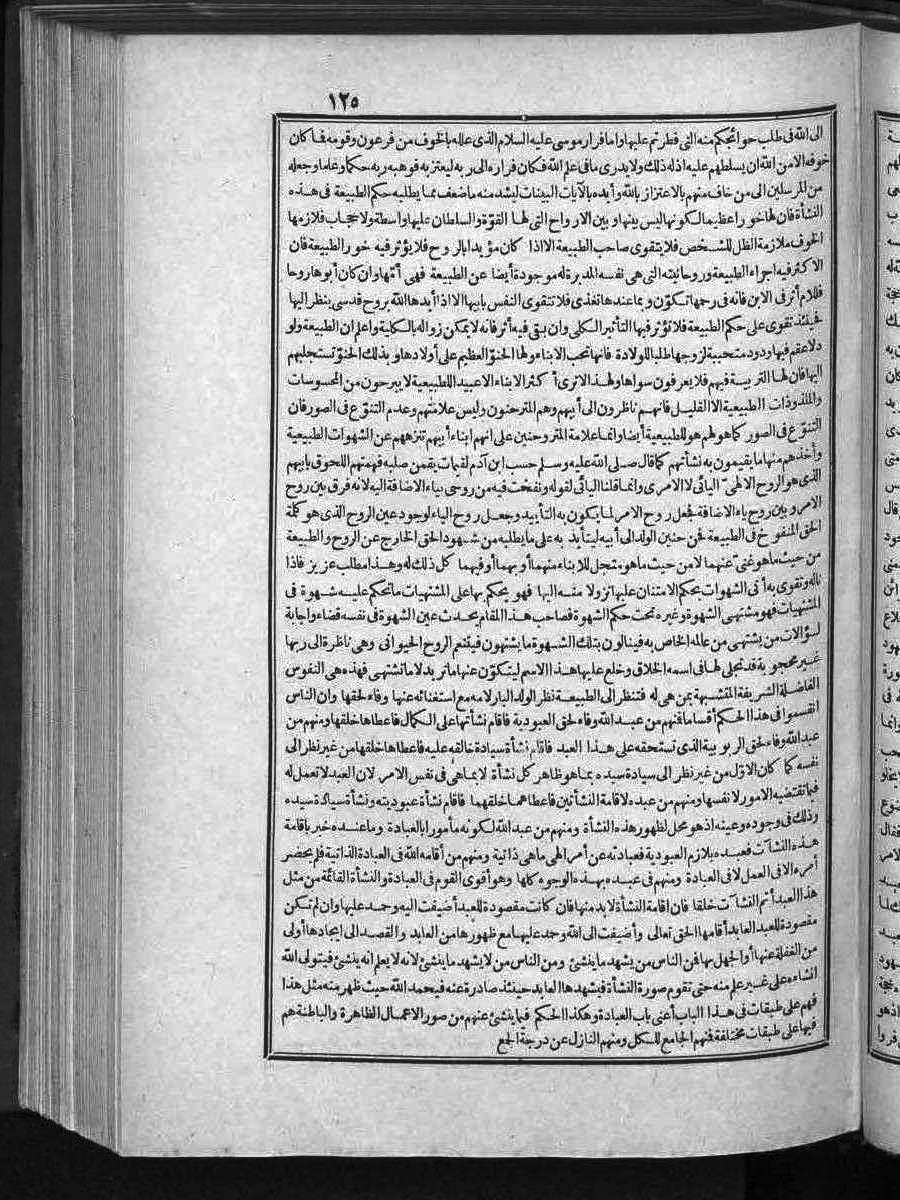 ١٢٥
الى الله فى طلب حوائجكم منه التى فطرتم عليها واما فرار موسى عليه السلام الذى علله بالخوف من فرعون وقومه فما كان
خوفه الا من الله ان يسلطهم عليه اذ له ذلك ولا يدرى ما فى علم الله فكان فراره الى ربه ليعتز به فوهبه ربه حكما وعلما وجعله
من المرسلين الى من خاف منهم بالاعتزاز بالله وأيده بالآيات البينات ليشد منه ما ضعف مما يطلبه حكم الطبيعة فى هذه
النشأة فان لها خورا عظيما لكونها ليس بينها وبين الارواح التى لها القوّة والسلطان عليها واسطة ولا حجاب فلازمها
الخوف ملازمة الظل للشخص فلا يتقوى صاحب الطبيعة الا اذا كان مؤيدا بالروح فلا يؤثر فيه خور الطبيعة فان
الاكثر فيه اجراء الطبيعة وروحانيته التى هى نفسه المدبرة له موجودة أيضا عن الطبيعة فهى أمّها وان كان أبوها روحا
فللام أثر فى الابن فانه فى رحمها تكوّن وبما عندها تغذى فلا تتقوى النفس بأبيها الا اذا أيدها الله بروح قدسى ينظر اليها
فحينئذ تقوى على حكم الطبيعة فلا تؤثر فيها التأثير الكلى وان بقى فيه أثر فانه لا يمكن زواله بالكلية واعلم ان الطبيعة ولود
لا عقم فيها ودود متحببة لزوجها طلبا للولادة فانها تحب الابناء ولها الحنوّ العظيم على أولادها وبذلك الحنوّ تستجلبهم
اليها فان لها التربية فيهم فلا يعرفون سواها ولهذا لا ترى أكثر الابناء الا عبيد اللطبيعة لا يبرحون من المحسوسات
والملذوذات الطبيعية الا القليل فانهم ناظرون الى أبيهم وهم المتروحنون وليس علامتهم وعدم التنوّع فى الصور فان
التنوّع فى الصور كما هو لهم هو للطبيعية أيضا وانما علامة المتروحنين على انهم ابناء أبيهم تنزههم عن الشهوات الطبيعية
وأخذهم منها ما يقيمون به نشأتهم كما قال صلى الله عليه وسلم حسب ابن آدم لقيمات يقمن صلبه فهمتهم اللحوق بأبيهم
الذى هو الروح الالهىّ اليائى لا الامرى وانما قلنا اليائى لقوله ونفخت فيه من روحى بياء الاضافة اليه لانه فرق بين روح
الامر وبين روح ياء الاضافة فجعل روح الامر لما يكون به التأييد وجعل روح الياء لوجود عين الروح الذى هو كلمة
الحق المنفوخ فى الطبيعة فمن حنين الولد الى أبيه ليتأيد به على ما يطلبه من شهود الحق الخارج عن الروح والطبيعة
من حيث ما هو غنىّ عنهما لا من حيث ما هو متجل للابناء منهما أو بهما أو فيهما كل ذلك له وهذا مطلب عزيز فاذا
ناله وتقوى به أتى الشهوات بحكم الامتنان عليها نزولا منه اليها فهو يحكم بها على المشتهيات ما تحكم عليه شهوة فى
المشتهيات فهو مشتهى الشهوة وغيره تحت حكم الشهوة فصاحب هذا المقام يحدث عين الشهوة فى نفسه قضاء واجابة
لسؤالات من يشتهى من عالمه الخاص به فينالون بتلك الشهوة ما يشتهون فيتنعم الروح الحيوانى وهى ناظرة الى ربها
غير محجوبة قد تجلى لها فى اسمه الخلاق وخلع عليها هذا الاسم ليتكوّن عنها ما تريد لا ما تشتهى فهذه هى النفوس
الفاضلة الشريفة المتشبهة بمن هى له فتنظر الى الطبيعة نظر الولد البار لامه مع استغنائه عنها وفاء لحقها وان الناس
انقسموا فى هذا الحكم أقساما فمنهم من عبد الله وفاء لحق العبودية فاقام نشأتها على الكمال فاعطاها خلقها ومنهم من
عبد الله وفاء لحق الربوبية الذى تستحقه على هذا العبد فاقام نشأة سيادة خالقه عليه فاعطاها خلقها من غير نظر الى
نفسه كما كان الاوّل من غير نظر الى سيادة سيده بما هو ظاهر كل نشأة لا بما هى فى نفس الامر لان العبد لا تعمل له
فيما تقتضيه الامور لانفسها ومنهم من عبده لاقامة النشأتين فاعطاهما خلقهما فاقام نشأة عبوديته ونشأة سيادة سيده
وذلك فى وجوده وعينه اذ هو محل لظهور هذه النشأة ومنهم من عبد الله لكونه مأمورا بالعبادة وما عنده خبر باقامة
هذه النشآت فعبده بلازم العبودية فعبادته عن أمر الهى ما هى ذاتية ومنهم من أقامه الله فى العبادة الذاتية فلم يحضر
أمره الا فى العمل لا فى العبادة ومنهم فى عبده بهذه الوجوه كلها وهو أقوى القوم فى العبادة والنشأة القائمة من مثل
هذا العبد أتم النشآت خلقا فان اقامة النشأة لا بد منها فان كانت مقصودة للعبد أضيفت اليه وحمد عليها وان لم تكن
مقصودة للعبد العابد أقامها الحق تعالى وأضيفت الى الله وحمد عليها مع ظهورها من العابد والقصد الى ايجادها أولى
من الغفلة عنها أو الجهل بها فمن الناس من يشهد ما ينشئ ومن الناس من لا يشهد ما ينشئ لانه لا يعلم انه ينشئ فيتولى الله
انشاءه على غير علم منه حتى تقوم صورة النشأة فيشهدها العابد حينئذ صادرة عنه فيحمد الله حيث ظهر منه مثل هذا
فهم على طبقات فى هذا الباب أعنى باب العبادة وهكذا الحكم فيما ينشئ عنهم من صور الاعمال الظاهرة والباطنة هم
فيها على طبقات مختلفة فمنهم الجامع للكل ومنهم النازل عن درجة الجمع